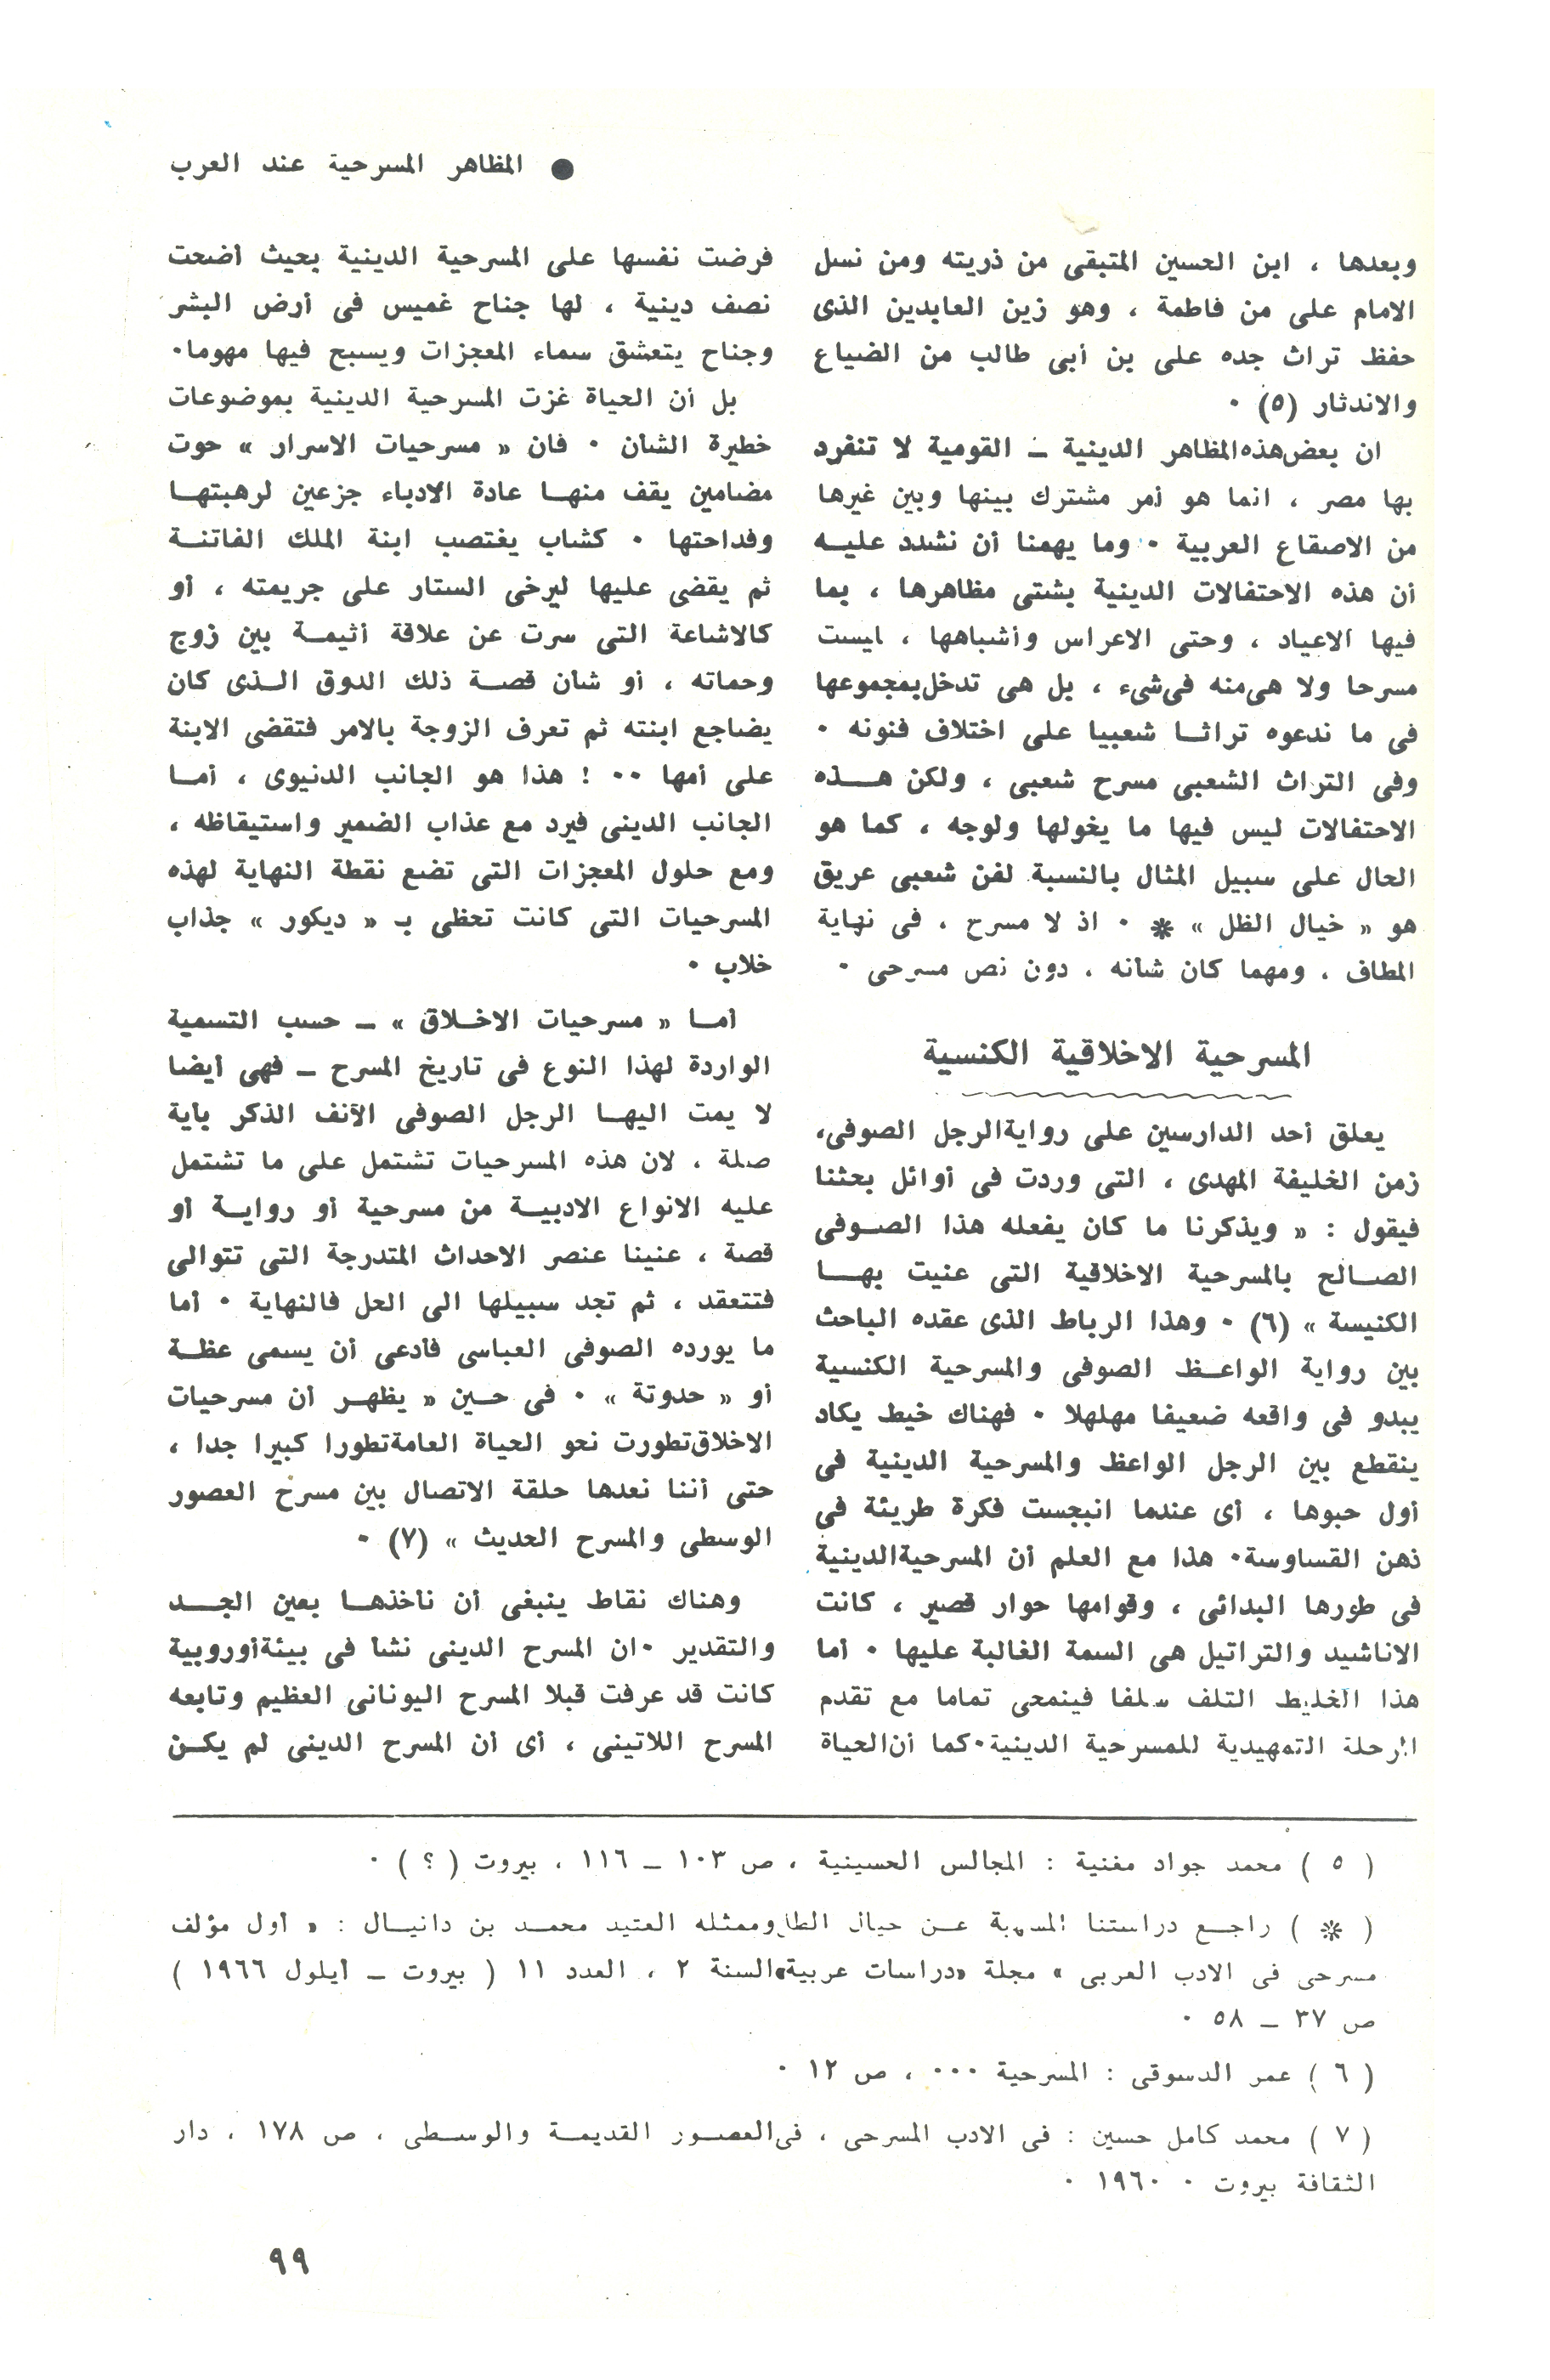 ● المظاهر المسرحية عند العرب
وبعدها ، ابن الحسين المتبقى من ذريته ومن نسل
الامام على من فاطمة ، وهو زين العابدين الذى
حفظ تراث جده على بن أبى طالب من الضياع
والاندثار (٥) ٠
ان بعض هذه المظاهر الدينية ــ القومية لا تنفرد
بها مصر ، انما هو أمر مشترك بينها وبين غيرها
من الاصقاع العربية ٠ وما يهمنا أن نشدد عليـه
أن هذه الاحتفالات الدينية بشتى مظاهرها ، بما
فيها الاعياد ، وحتى الاعراس وأشباهها ، ليست
مسرحا ولا هى منه فى شىء ، بل هى تدخل بمجموعها
فى ما ندعوه تراثـا شعبيا على اختلاف فنونه ٠
وفى التراث الشعبى مسرح شعبى ، ولكن هـذه
الاحتفالات ليس فيها ما يخولها ولوجه ، كما هو
الحال على سبيل المثال بالنسبة لفن شعبى عريق
هو « خيال الظل » * ٠ اذ لا مسرح ، فى نهاية
المطاف ، ومهما كان شأنه ، دون نص مسرحى ٠
المسرحية الاخلاقية الكنسية
يعلق أحد الدارسين على رواية الرجل الصوفى،
زمن الخليفة المهدى ، التى وردت فى أوائل بحثنا
فيقول : « ويذكرنا ما كان يفعله هذا الصـوفى
الصـالح بالمسرحية الاخلاقية التى عنيت بهـا
الكنيسة » (٦) ٠ وهذا الرباط الذى عقده الباحث
بين رواية الواعـظ الصوفى والمسرحية الكنسية
يبدو فى واقعه ضعيفا مهلهلا ٠ فهناك خيط يكاد
ينقطع بين الرجل الواعظ والمسرحية الدينية فى
أول حبوها ، أى عندما انبجست فكرة طريئة فى
ذهن القساوسة٠ هذا مع العلم أن المسرحية الدينية
فى طورها البدائى ، وقوامها حوار قصير ، كانت
الاناشيد والتراتيل هى السمة الغالبة عليها ٠ أما
هذا الخليط التلف سلفا فينمحى تماما مع تقدم
المرحلة التمهيدية للمسرحية الدينية٠ كما أن الحياة
فرضت نفسها على المسرحية الدينية بحيث أضحت
نصف دينية ، لها جناح غميس فى أرض البشر
وجناح يتعشق سماء المعجزات ويسبح فيها مهوما٠
بل أن الحياة غزت المسرحية الدينية بموضوعات
خطيرة الشأن ٠ فان « مسرحيات الاسرار » حوت
مضامين يقف منهـا عادة الادباء جزعين لرهبتهـا
وفداحتها ٠ كشاب يغتصب ابنة الملك الفاتنـة
ثم يقضى عليها ليرخى الستار على جريمته ، أو
كالاشاعة التى سرت عن علاقة أثيمـة بين زوج
وحماته ، أو شأن قصـة ذلك الدوق الـذى كان
يضاجع ابنته ثم تعرف الزوجة بالامر فتقضى الابنة
على أمها ٠٠ ! هذا هو الجانب الدنيوى ، أمـا
الجانب الدينى فيرد مع عذاب الضمير واستيقاظه ،
ومع حلول المعجزات التى تضع نقطة النهاية لهذه
المسرحيات التى كانت تحظى بـ « ديكور » جذاب
خلاب ٠
أمـا « مسرحيات الاخـلاق » ــ حسب التسمية
الواردة لهذا النوع فى تاريخ المسرح ــ فهى أيضا
لا يمت اليهـا الرجل الصوفى الآنف الذكر بأية
صلة ، لان هذه المسرحيات تشتمل على ما تشتمل
عليه الانواع الادبيـة من مسرحية أو روايـة أو
قصة ، عنينا عنصر الاحداث المتدرجة التى تتوالى
فتتعقد ، ثم تجد سبيلها الى الحل فالنهاية ٠ أما
ما يورده الصوفى العباسى فأدعى أن يسمى عظـة
أو « حدوتة » ٠ فى حـين « يظهـر أن مسرحيات
الاخلاق تطورت نحو الحياة العامة تطورا كبيرا جدا ،
حتى أننا نعدها حلقة الاتصال بين مسرح العصور
الوسطى والمسرح الحديث » (٧) ٠
وهناك نقاط ينبغى أن نأخذهـا بعين الجـد
والتقدير ٠ان المسرح الدينى نشأ فى بيئة أوروبية
كانت قد عرفت قبلا المسرح اليونانى العظيم وتابعه
المسرح اللاتينى ، أى أن المسرح الدينى لم يكـن
( ٥ ) محمد جواد مغنية : المجالس الحسينية ، ص ١٠٣ ــ ١١٦ ، بيروت ( ؟ ) ٠
( * ) راجـع دراستنا المسهبة عـن خيال الظل وممثله العتيد محمـد بن دانيـال : « أول مؤلف
مسرحى فى الادب العربى » مجلة «دراسات عربية» السنة ٢ ، العدد ١١ ( بيروت ــ أيلول ١٩٦٦ )
ص ٣٧ ــ ٥٨ ٠
( ٦ ) عمر الدسوقى : المسرحية ٠٠٠ ، ص ١٢ ٠
( ٧ ) محمد كامل حسين : فى الادب المسرحى ، فى العصـور القديمـة والوسـطى ، ص ١٧٨ ، دار
الثقافة بيروت ٠ ١٩٦٠ ٠
٩٩